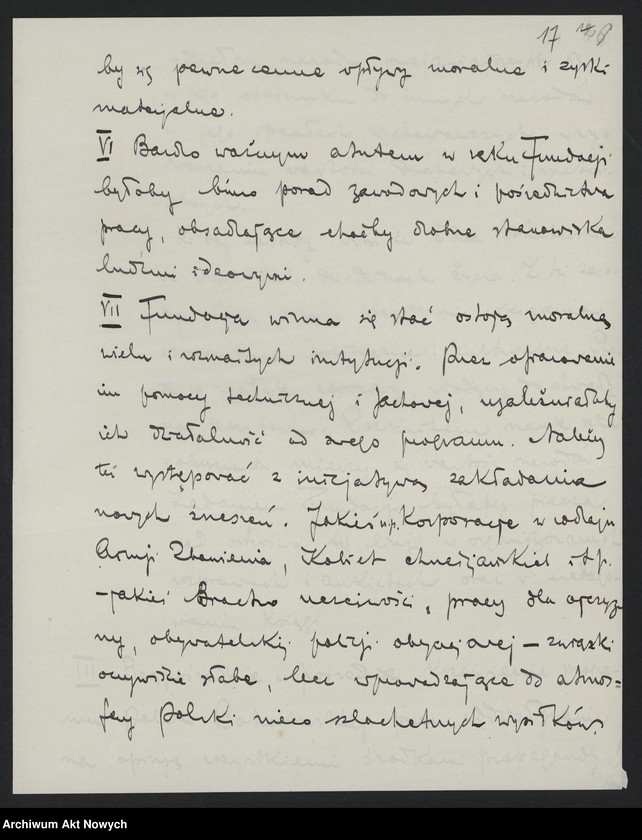 17
by się pewne cenne wpływy moralne i zyski
materjalne.
VI Bardzo ważnym atutem w ręku Fundacji
byłoby biuro porad zawodowych i pośrednictwa
pracy, obsadzające choćby drobne stanowiska
ludźmi ideowymi.
VII Fundacja winna się stać ostoją moralną
wielu i rozmaitych instytucji. Przez opracowanie
im pomocy technicznej i fachowej, uzależniałaby
ich działalność od swego programu. Należy
też występować z inicjatywą zakładania
nowych zrzeszeń. Jakieś np. Korporacje w rodzaju
Armji Zbawienia, Kobiet chrześcijańskich i t.p.
– jakieś Bractwo uczciwości, pracy dla ojczyz-
ny, obywatelskiej policji obyczajowej – związki
oczywiście słabe, lecz wprowadzające do atmos=
fery Polski nieco szlachetnych wysiłków.
Archiwum Akt Nowych